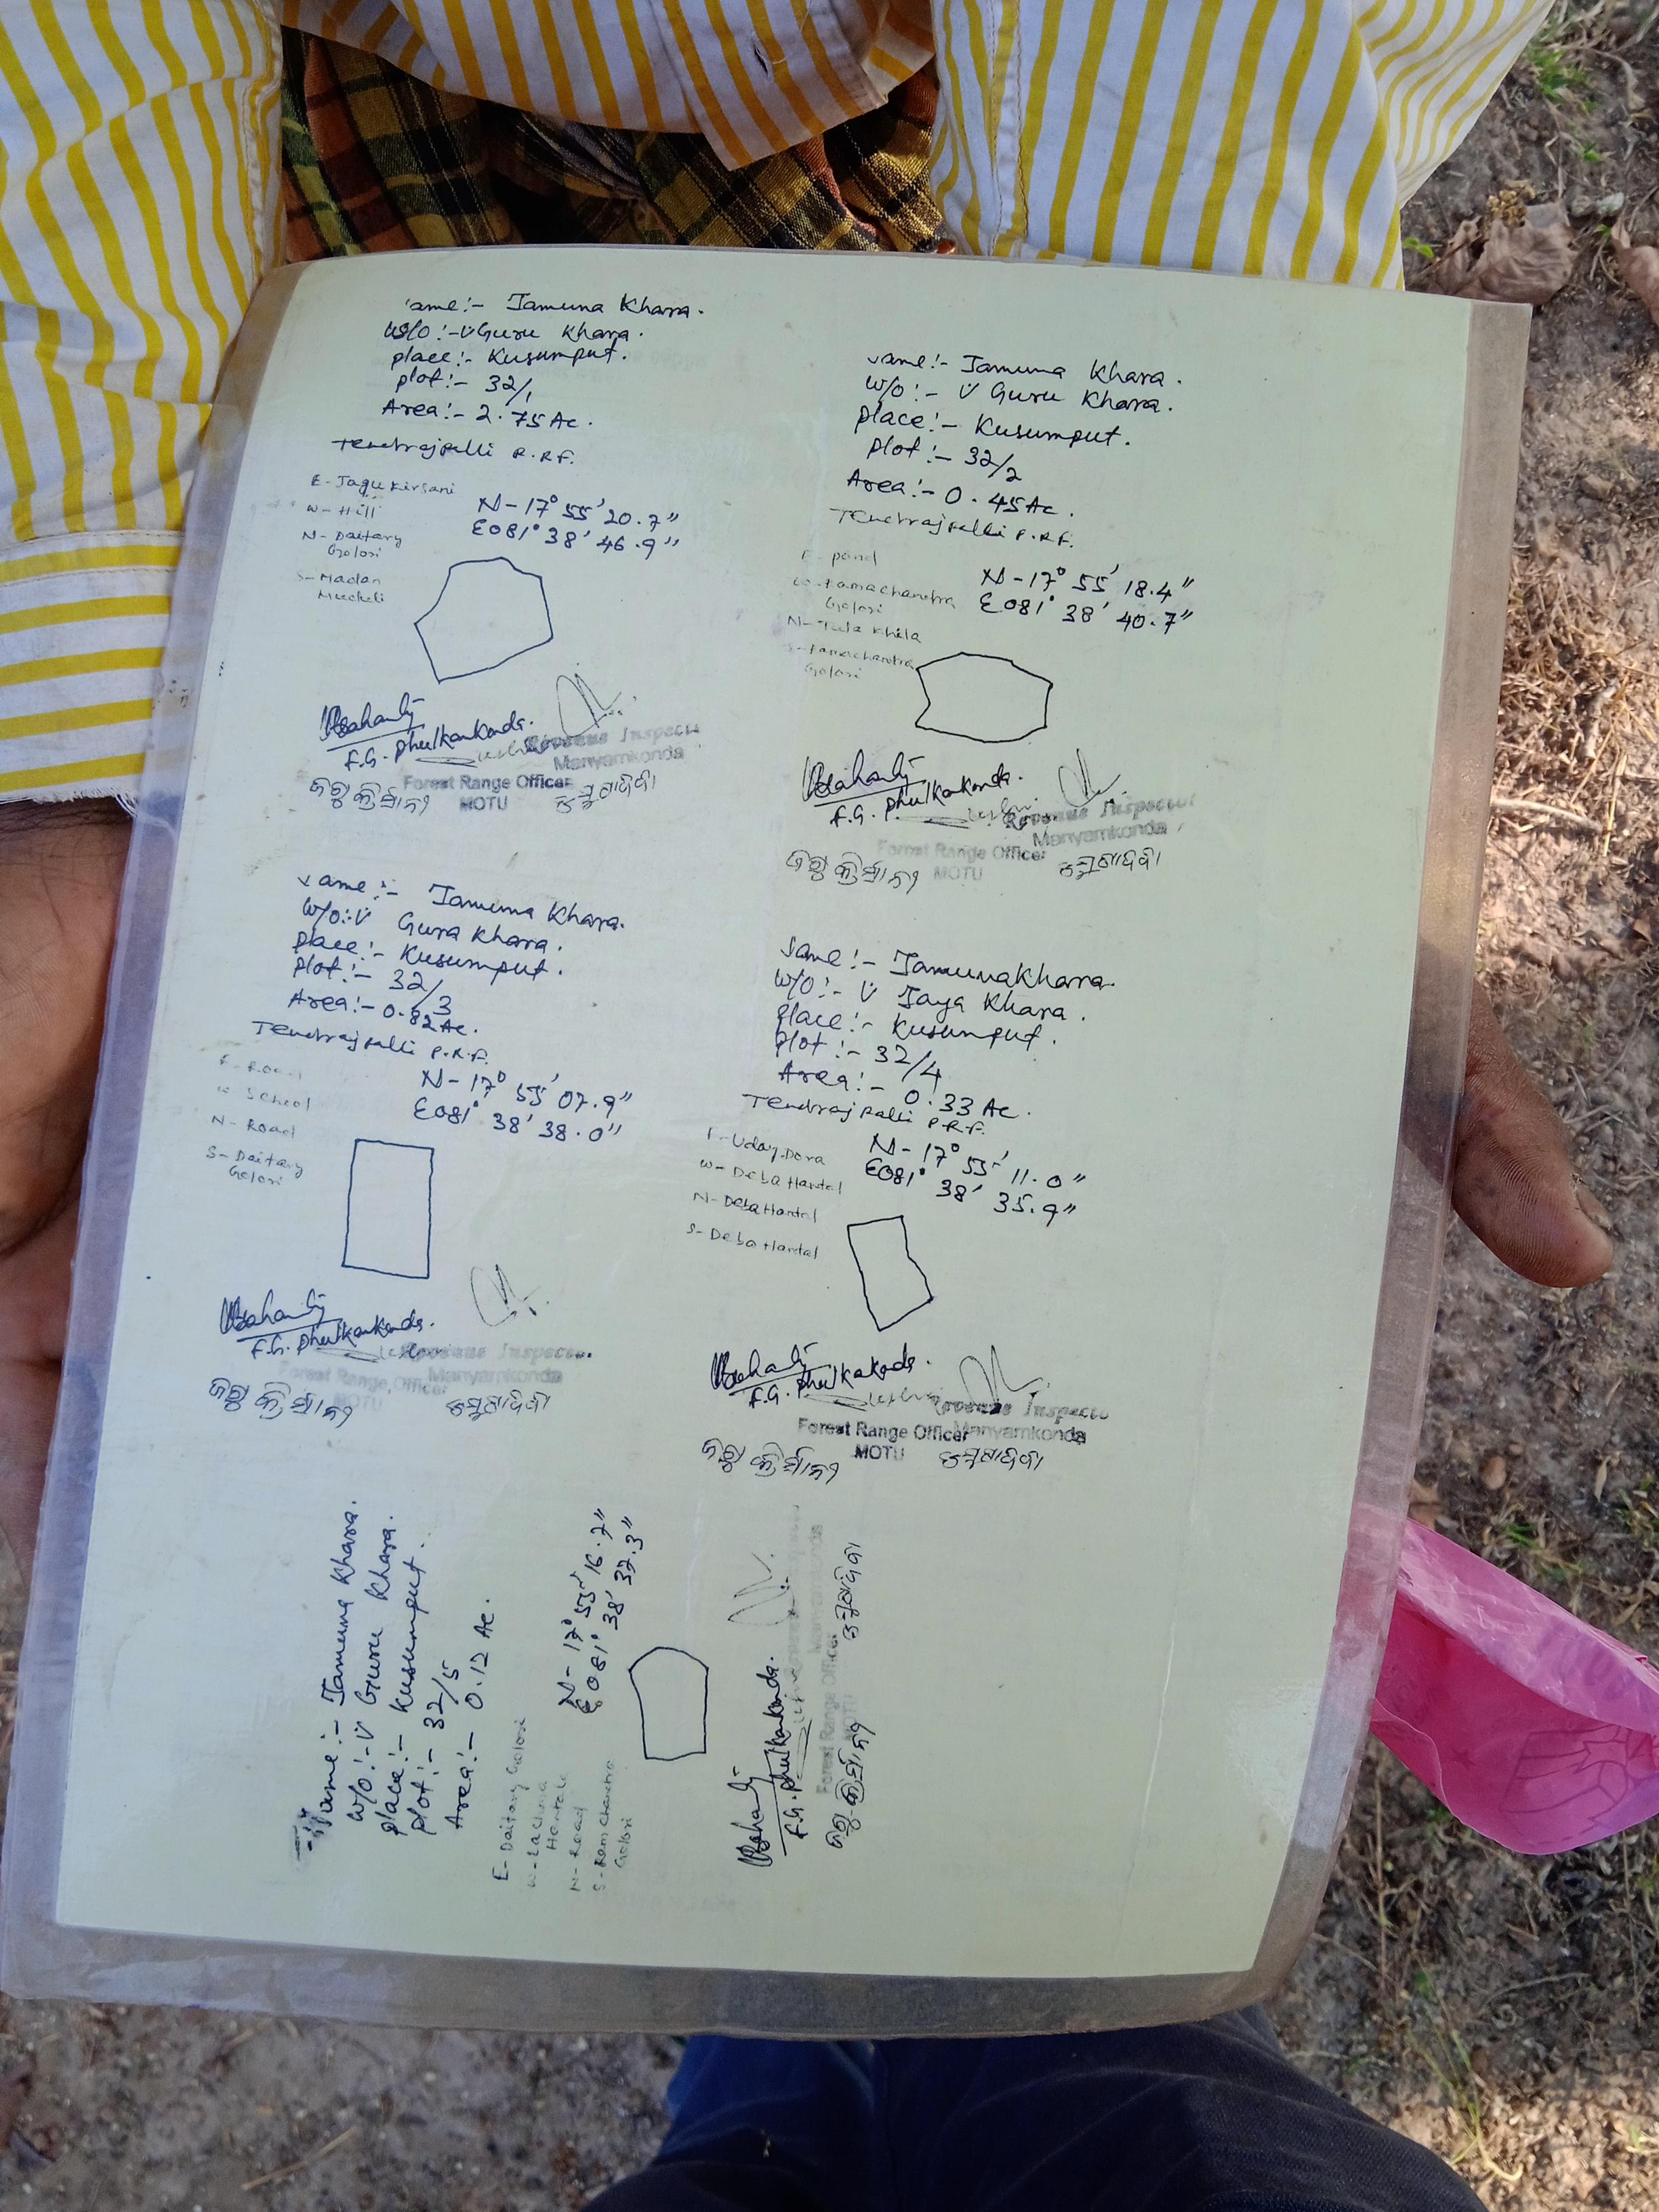 ame:- Jamuna Khara.
W/O:- V Guru Khara.
place:- Kusumput.
plot:- 32/1
Area:- 2.75 Ac.
Tendrajpalli P.R.F.
E- Jagu Kirsani
W- Hill
N- Daitary
Golori
S- Madan
Mucheli
N-17° 55' 20.7"
E081° 38' 46.9"
F.G. Phulkankonda.
Revenue Inspecto
Manyamkonda
Forest Range Officer
MOTU
ଜଗୁ କିର୍ସାନୀ
ame:- Jamuna Khara.
W/O:- V Guru Khara.
place:- Kusumput.
Plot:- 32/2
Area:- 0.45 Ac.
Tendrajpalli P.R.F.
E- pond
W- Ramachandra
Golori
N- Tula Khila
S- Ramachandra
Golori
N-17° 55' 18.4"
E081° 38' 40.7"
F.G. Phulkakonda.
Revenue Inspector
Manyamkonda
Forest Range Officer
MOTU
ଜଗୁ କିର୍ସାନୀ
ame:- Jamuna Khara.
W/O:- V Gura Khara.
place:- Kusumput.
Plot:- 32/3
Area:- 0.82 Ac.
Tendrajpalli P.R.F.
E- Road
W- School
N- Road
S- Daitary
Golori
N-17° 55' 07.9"
E081° 38' 38.0"
F.G. Phulkankonda.
Revenue Inspecto
Manyamkonda
Forest Range Officer
MOTU
ଜଗୁ କିର୍ସାନୀ
ame:- Jamuna Khara.
W/O:- V Jaya Khara.
place:- Kusumput.
Plot:- 32/4
Area:- 0.33 Ac.
Tendrajpalli P.R.F.
E- Uday Dora
W- Deba Hantal
N- Deba Hantal
S- Deba Hantal
N-17° 55' 11.0"
E081° 38' 35.9"
F.G. Phulkakonda.
Revenue Inspecto
Manyamkonda
Forest Range Officer
MOTU
ଜଗୁ କିର୍ସାନୀ
ame:- Jamuna Khara.
W/O:- V Guru Khara.
place:- Kusumput.
plot:- 32/5
Area:- 0.12 Ac.
E- Daitary Golori
W- Lachma
Hantal
N- Road
S- Ram Chandra
Golori
N-17° 55' 16.7"
E081° 38' 37.3"
F.G. Phulkakonda.
Manyamkonda
Forest Range Officer
MOTU
ଜଗୁ କିର୍ସାନୀ